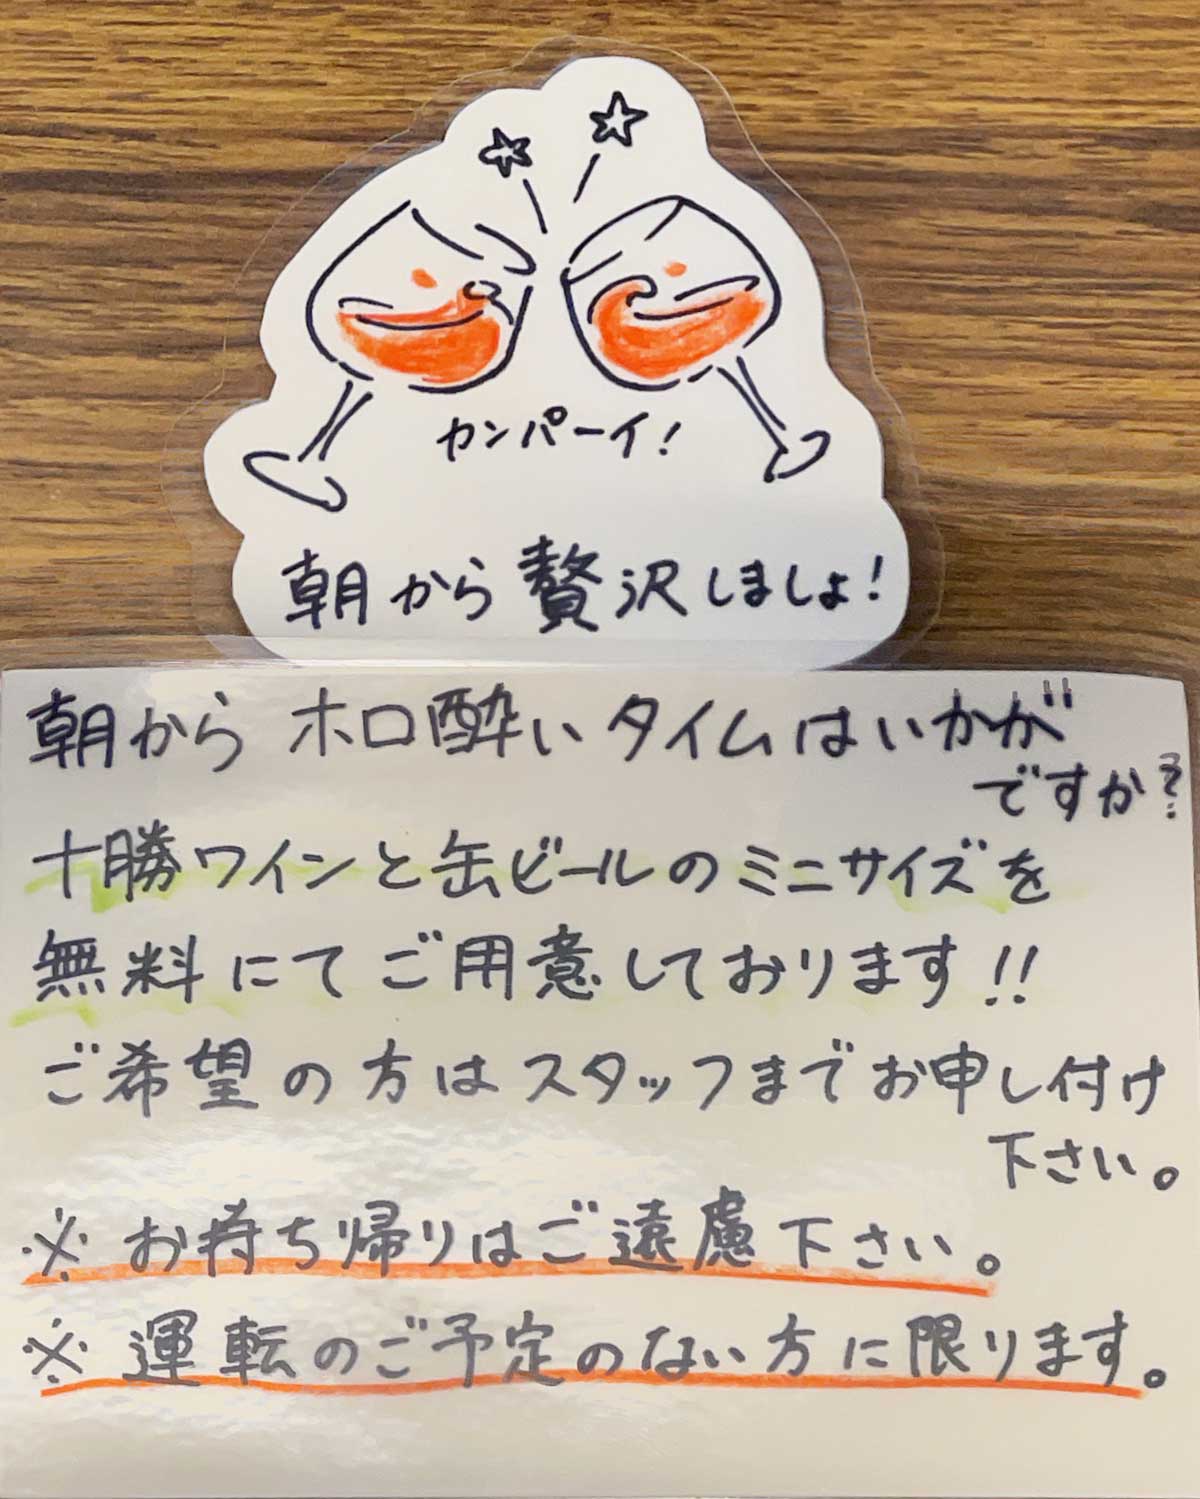 カンパーイ!
朝から贅沢しましょ!
朝からホロ酔いタイムはいかが
ですか?
十勝ワインと缶ビールのミニサイズを
無料にてご用意しております!!
ご希望の方はスタッフまでお申し付け
下さい。
※お持ち帰りはご遠慮下さい。
※運転のご予定のない方に限ります。